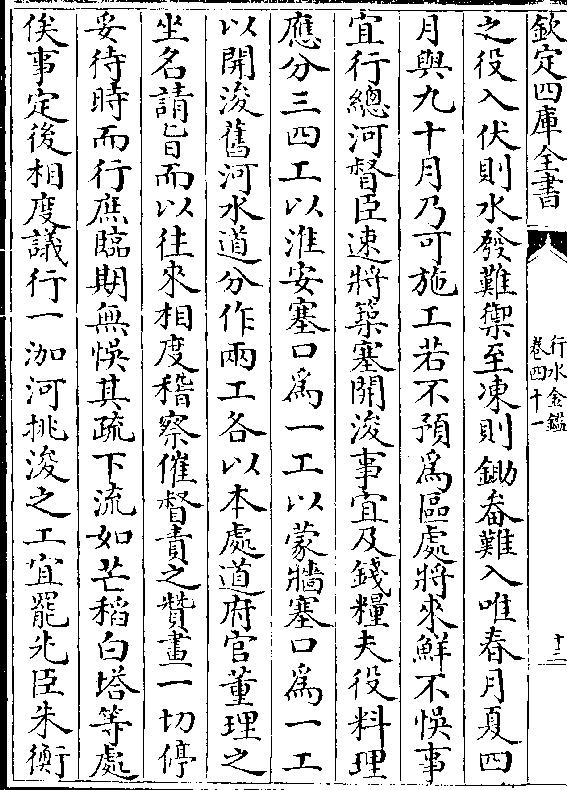 欽定四庫全書
行水金鑑
卷四十一
十二
之役入伏則水發難禦至凍則鋤畚難入唯春月夏四
月與九十月乃可施工若不預為區處將來鮮不悞事
宜行總河督臣速將築塞開浚事宜及錢糧夫役料理
應分三四工以淮安塞口為一工以蒙牆塞口為一工
以開浚舊河水道分作兩工各以本處道府官董理之
坐名請旨而以往來相度稽察催督責之贊畫一切停
妥待時而行庶臨期無悞其疏下流如芒稻白塔等處
俟事定後相度議行一泇河挑浚之工宜罷先臣朱衡